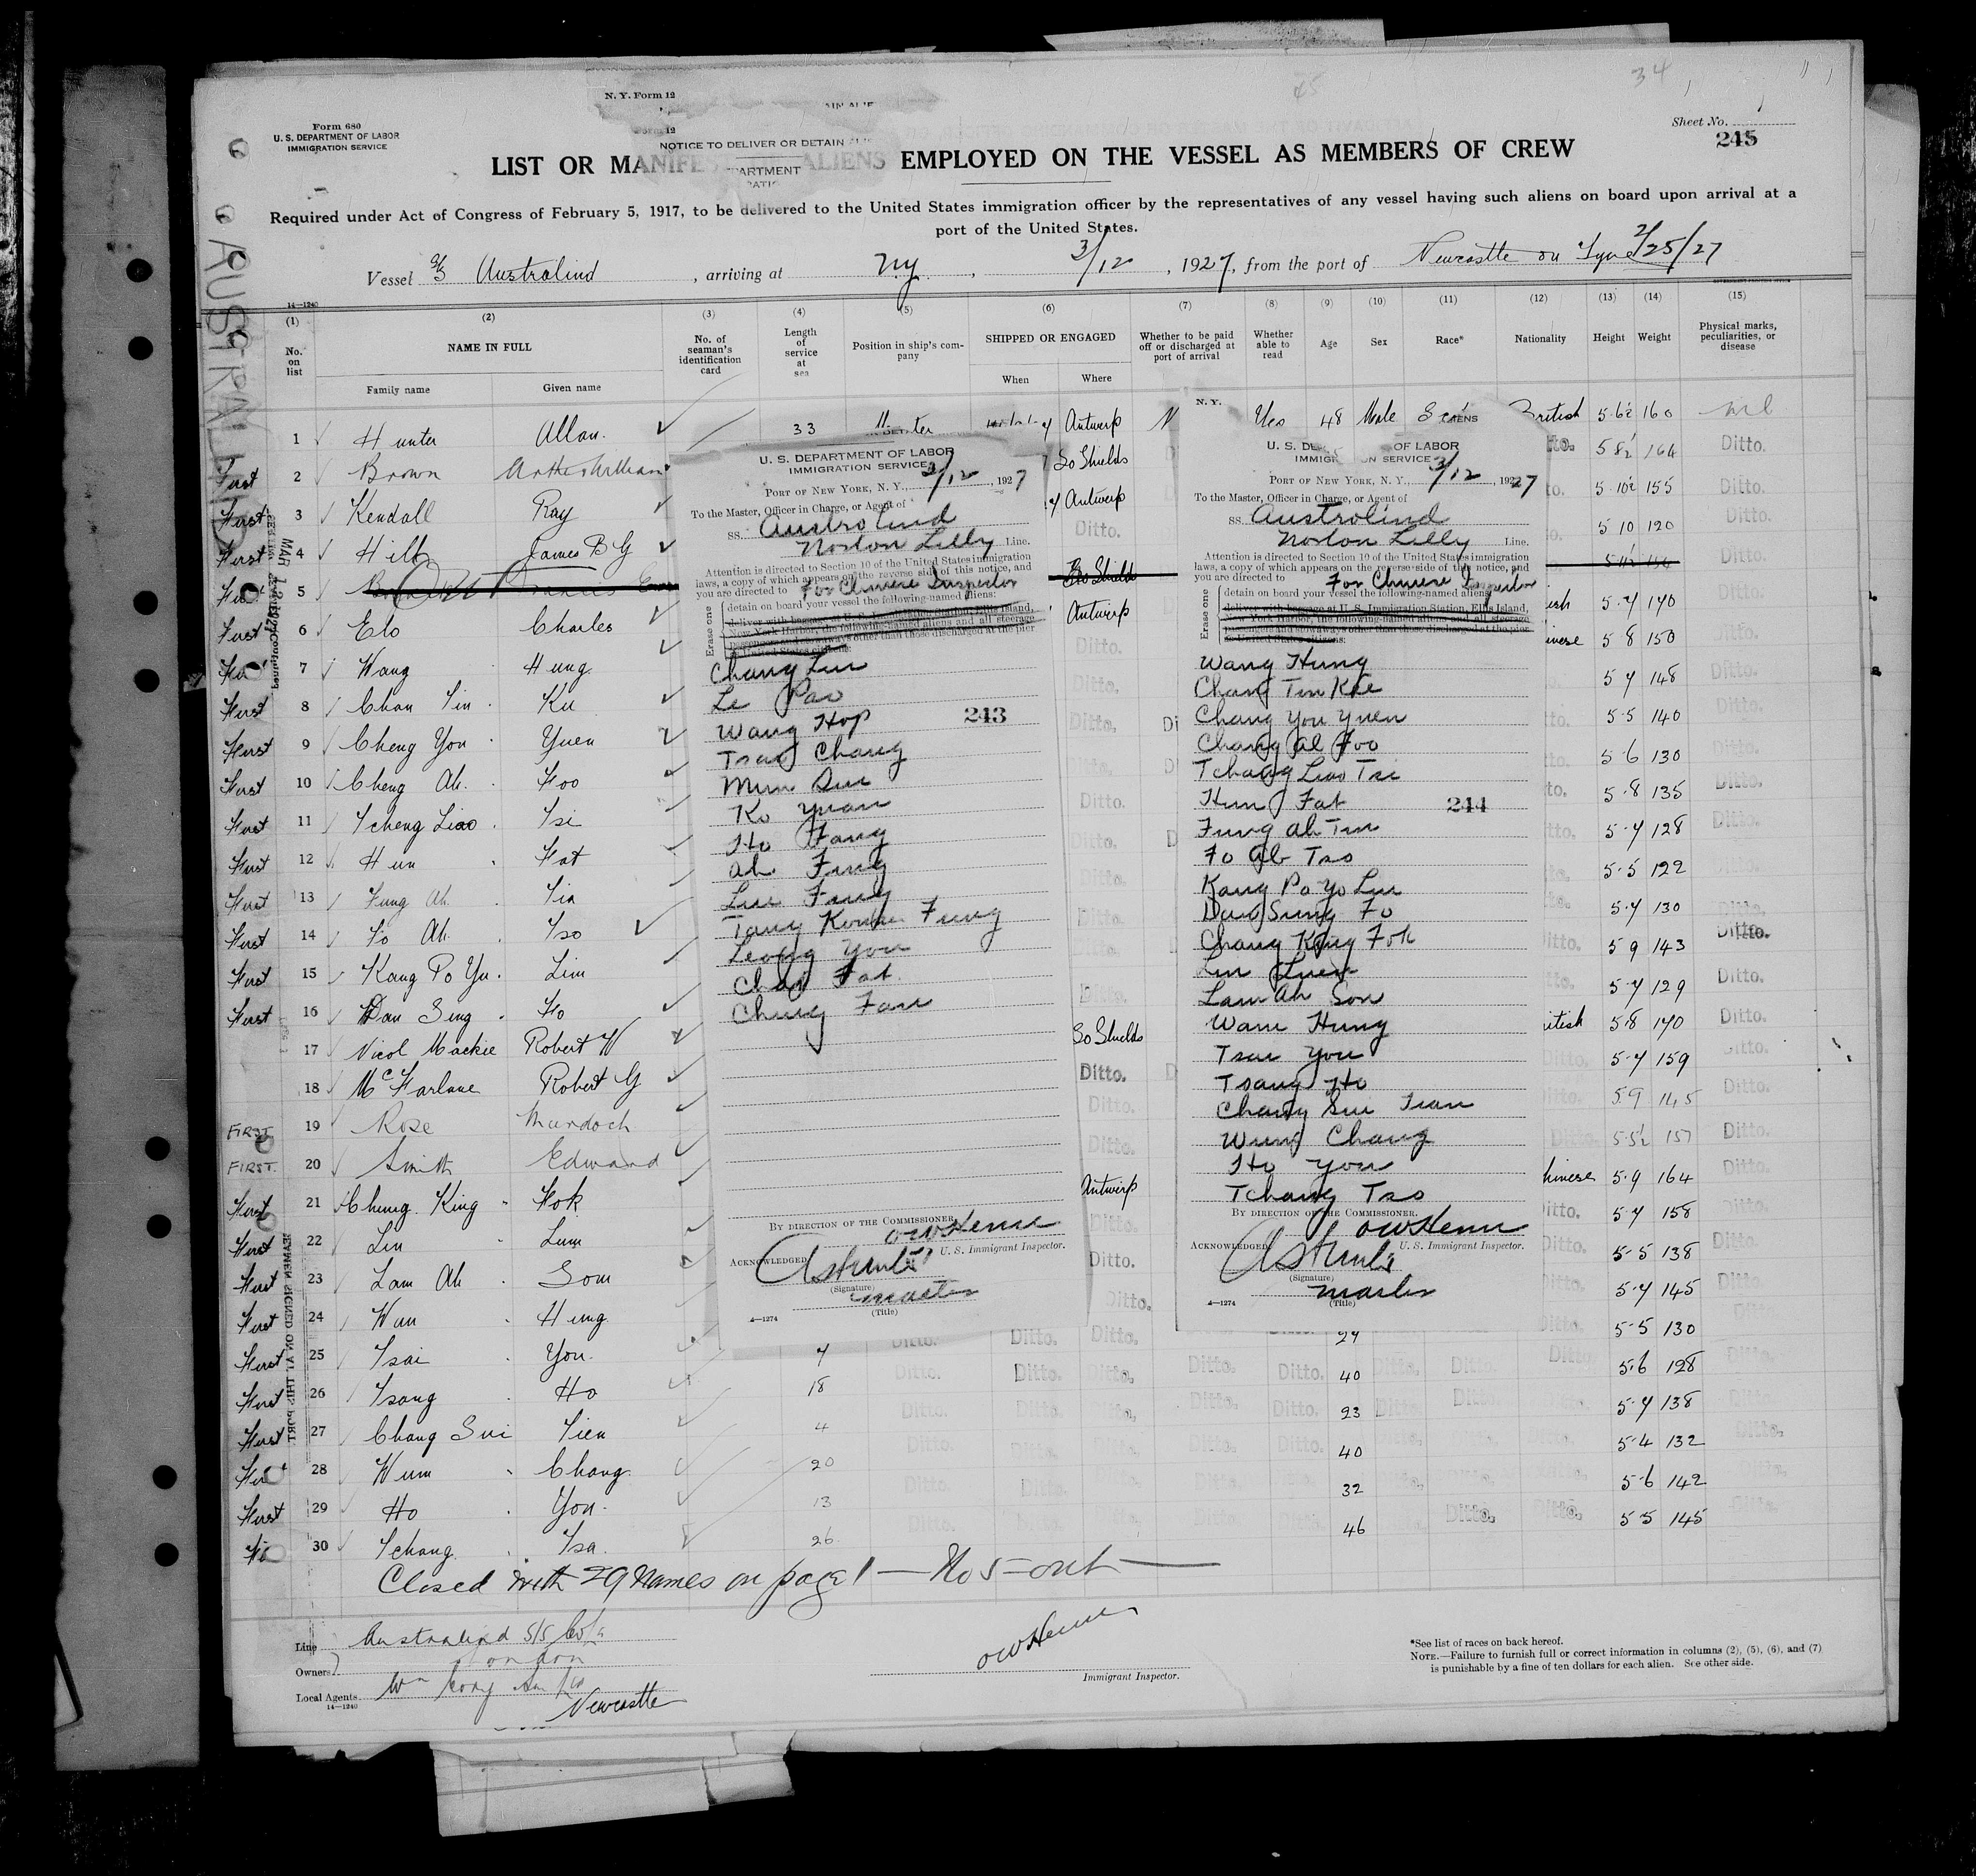 N. Y. Form 12
34
Form 680
U. S. DEPARTMENT OF LABOR
IMMIGRATION SERVICE
Form 12
NOTICE TO DELIVER OR DETAIN
Sheet No.
245
LIST OR MANIFE ALIENS EMPLOYED ON THE VESSEL AS MEMBERS OF CREW
PARTMENT
Required under Act of Congress of February 5, 1917, to be delivered to the United States immigration officer by the representatives of any vessel having such aliens on board upon arrival at a
port of the United States.
Vessel S/S Australind, arriving at N.Y., 3/12, 1927, from the port of Newcastle on Tyne 2/25/27
AUSTRALIND
14—1240
(1) (2) (3) (4) (5) (6) (7) (8) (9) (10) (11) (12) (13) (14) (15)
No. on list
NAME IN FULL
Family name Given name
No. of seaman's identification card
Length of service at sea
Position in ship's company
SHIPPED OR ENGAGED
When Where
Whether to be paid off or discharged at port of arrival
Whether able to read
Age Sex Race* Nationality Height Weight
Physical marks, peculiarities, or disease
1 Hunter Allan 33 Antwerp Yes 48 Male British 5·6½ 160 nil
First 2 Brown So Shields 5 8½ 164 Ditto.
First 3 Kendall Ray Antwerp 5·10½ 155 Ditto.
First 4 Hill James B G Ditto. 5 10 120 Ditto.
First 5 Out So Shields Ditto.
First 6 Elo Charles Antwerp 5·7 140 Ditto.
7 Wang Hung Ditto. 5 8 150
First 8 Chan Tin Ku Ditto. 5 7 148 Ditto.
First 9 Cheng You Yuen Ditto. 5·5 140 Ditto.
First 10 Cheng Ah Foo Ditto. 5·6 130 Ditto.
First 11 Tcheng Liao Tsi Ditto. 5·8 135 Ditto.
First 12 Hun Fat Ditto. 5·7 128 Ditto.
First 13 Fung Ah Tin Ditto. 5·5 122
First 14 Fo Ah Tso Ditto. 5·7 130 Ditto.
First 15 Kang Po Yu Lim 5 9 143 Ditto.
First 16 Dan Sing Fo 5·7 129 Ditto.
17 Nicol Mackie Robert W So Shields British 5·8 140 Ditto.
18 McFarlane Robert G Ditto. 5·7 159 Ditto.
FIRST 19 Rose Murdoch Ditto. 5 9 145 Ditto.
FIRST. 20 Smith Edward Ditto. 5·5½ 157 Ditto.
First 21 Cheung King Fok Antwerp Chinese 5·9 164 Ditto.
First 22 Lin Lum Ditto. 5·7 158 Ditto.
First 23 Lam Ah Som Ditto. 5·5 138 Ditto.
First 24 Wan Hung Ditto. 5·7 145 Ditto.
First 25 Tsai You 7 Ditto. Ditto. Ditto. 29 Ditto. 5·5 130
First 26 Tsang Ho 18 Ditto. Ditto. Ditto. Ditto. Ditto. 40 Ditto. Ditto. Ditto. 5·6 128
First 27 Chang Sui Tien 4 Ditto. Ditto. Ditto. Ditto. Ditto. 23 5·7 138
First 28 Wum Chang 20 Ditto. Ditto. Ditto. Ditto. Ditto. 40 5·4 132 Ditto.
First 29 Ho You 13 Ditto. Ditto. 32 5·6 142
30 Tchang Tsa 26 Ditto. 46 Ditto. Ditto. 5·5 145
Closed with 29 names on page 1 — No 5 — out —
SEAMEN SIGNED ON AT THIS PORT
U. S. DEPARTMENT OF LABOR
IMMIGRATION SERVICE
PORT OF NEW YORK, N. Y., 3/12, 1927
To the Master, Officer in Charge, or Agent of
SS. Australind
Norton Lilly Line.
Attention is directed to Section 10 of the United States immigration
laws, a copy of which appears on the reverse side of this notice, and
you are directed to For Chinese Inspector
Erase one
detain on board your vessel the following-named aliens:
deliver with baggage at U. S. Immigration Station, Ellis Island,
New York Harbor, the following-named aliens and all steerage
passengers and stowaways other than those discharged at the pier
as United States citizens:
Chang Lin
Le Pao
Wang Hop
243
Tsan Chang
Mun Sui
Ko Yuan
Ho Fang
Ah Fing
Lui Fung
Tang Kown Fung
Leong You
Chan Fat
Chung Fan
BY DIRECTION OF THE COMMISSIONER,
O W Henn
U. S. Immigrant Inspector.
ACKNOWLEDGED
A Hunter
(Signature)
master
(Title)
4—1274
N. Y.
U. S. DE OF LABOR
IMMIGR N SERVICE
PORT OF NEW YORK, N. Y., 3/12, 1927
To the Master, Officer in Charge, or Agent of
SS. Australind
Norton Lilly Line.
Attention is directed to Section 10 of the United States immigration
laws, a copy of which appears on the reverse side of this notice, and
you are directed to For Chinese Inspector
Erase one
detain on board your vessel the following-named aliens:
deliver with baggage at U. S. Immigration Station, Ellis Island,
New York Harbor, the following-named aliens and all steerage
passengers and stowaways other than those discharged at the pier
as United States citizens:
Wang Hung
Chang Tin Khe
Chang You Yuen
Chang Al Foo
Tchang Liao Tsi
Hun Fat
244
Fung Ah Tin
Fo Ah Tso
Kang Po Yo Lin
Dan Sung Fo
Chang King Foh
Lin Luen
Lam Ah Son
Wam Hung
Tsai You
Tsang Ho
Chang Sui Tian
Wung Chang
Ho You
Tchang Tso
BY DIRECTION OF THE COMMISSIONER.
O W Henn
ACKNOWLEDGED
U. S. Immigrant Inspector.
A Hunter
(Signature)
master
(Title)
4—1274
Line Australind S/S Co
Owners London
Local Agents Wm Cory
Newcastle
14—1240
O W Henn
Immigrant Inspector.
*See list of races on back hereof.
NOTE.—Failure to furnish full or correct information in columns (2), (5), (6), and (7)
is punishable by a fine of ten dollars for each alien. See other side.